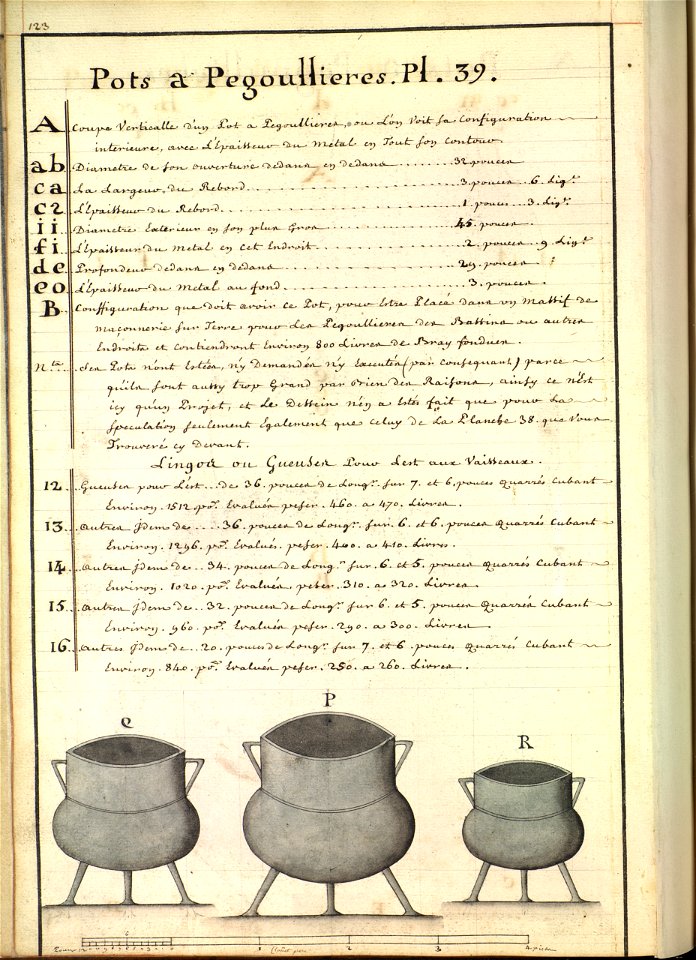 123
Pots a Pegoullieres. Pl. 39.
A Coupe Verticalle d'un Pot a Pegoullieres, ou L'on Voit sa Configuration
interieure, avec L'Epaisseur du Metal en Tout son Contour
ab Diametre de son ouverture dedans en dedans ........ 32. pouces
ca La Largeur du Rebord ........ 3. pouces .. 6. Lig.s
c2 L'Epaisseur du Rebord ........ 1. pouce .. 3. Lig.s
ii Diametre Exterieur en son plus Gros ........ 45. pouces .
fi L'Epaisseur du Metal en Cet Endroit ........ 2. pouces .. 9. Lig.s
de Profondeur dedans en dedans ........ 29. pouces
eo L'Epaisseur du Metal au fond ........ 3. pouces .
B Configuration que doit avoir ce Pot, pour Estre Placé dans un Massif de
maçonnerie sur Terre pour Les Pegoullieres des Bassins ou autres
Endroits et Contiendront Environ 800 Livres de Bray fondues .
N.ta Ses Pots n'ont Estées, n'y Demandés n'y Executés (par Consequant) parce
qu'ils sont aussy trop Grand par Bien des Raisons, ainsy ce n'est
icy qu'un Projet, et Le Dessein n'en a Estés fait que pour La
speculation seulement Egalement que celuy de La Planche 38. que Vous
Trouveré cy devant.
Lingos ou Gueuses Pour Lest aux Vaisseaux .
12 Gueuses pour L'est .. de 36. pouces de Long.r sur 7. et 6. pouces Quarrés Cubant
Environ . 1512 po.s Evalués peser . 460. a 470. Livres .
13 autres Jdem de .... 36. pouces de Long.r sur 6. et 6. pouces Quarrés Cubant
Environ . 1296. po.s Evalués peser . 400. a 410. Livres .
14 autres Jdem de .. 34. pouces de Long.r sur 6. et 5. pouces Quarrés Cubant
Environ . 1020 . po.s Evalués peser . 310. a 320. Livres .
15 autres Jdem de .. 32. pouces de Long.r sur 6. et 5. pouces Quarrés Cubant
Environ . 960. po.s Evalués peser . 290. a 300. Livres
16 autres Jdem de .. 20. pouces de Long.r sur 7. et 6. pouces Quarrés Cubant
Environ . 840. po.s Evalués peser . 250. a 260. Livres .
Q P R
6 1 2 3 4 pieds